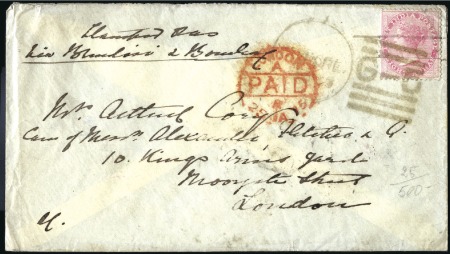 via Brindisi & Bombay
LONDON
PAID
Mr. Arthur Cory
Care of Messrs Alexander, Fletcher & Co.
10. Kings Arms Yard
Moorgate Street
London
25
500-